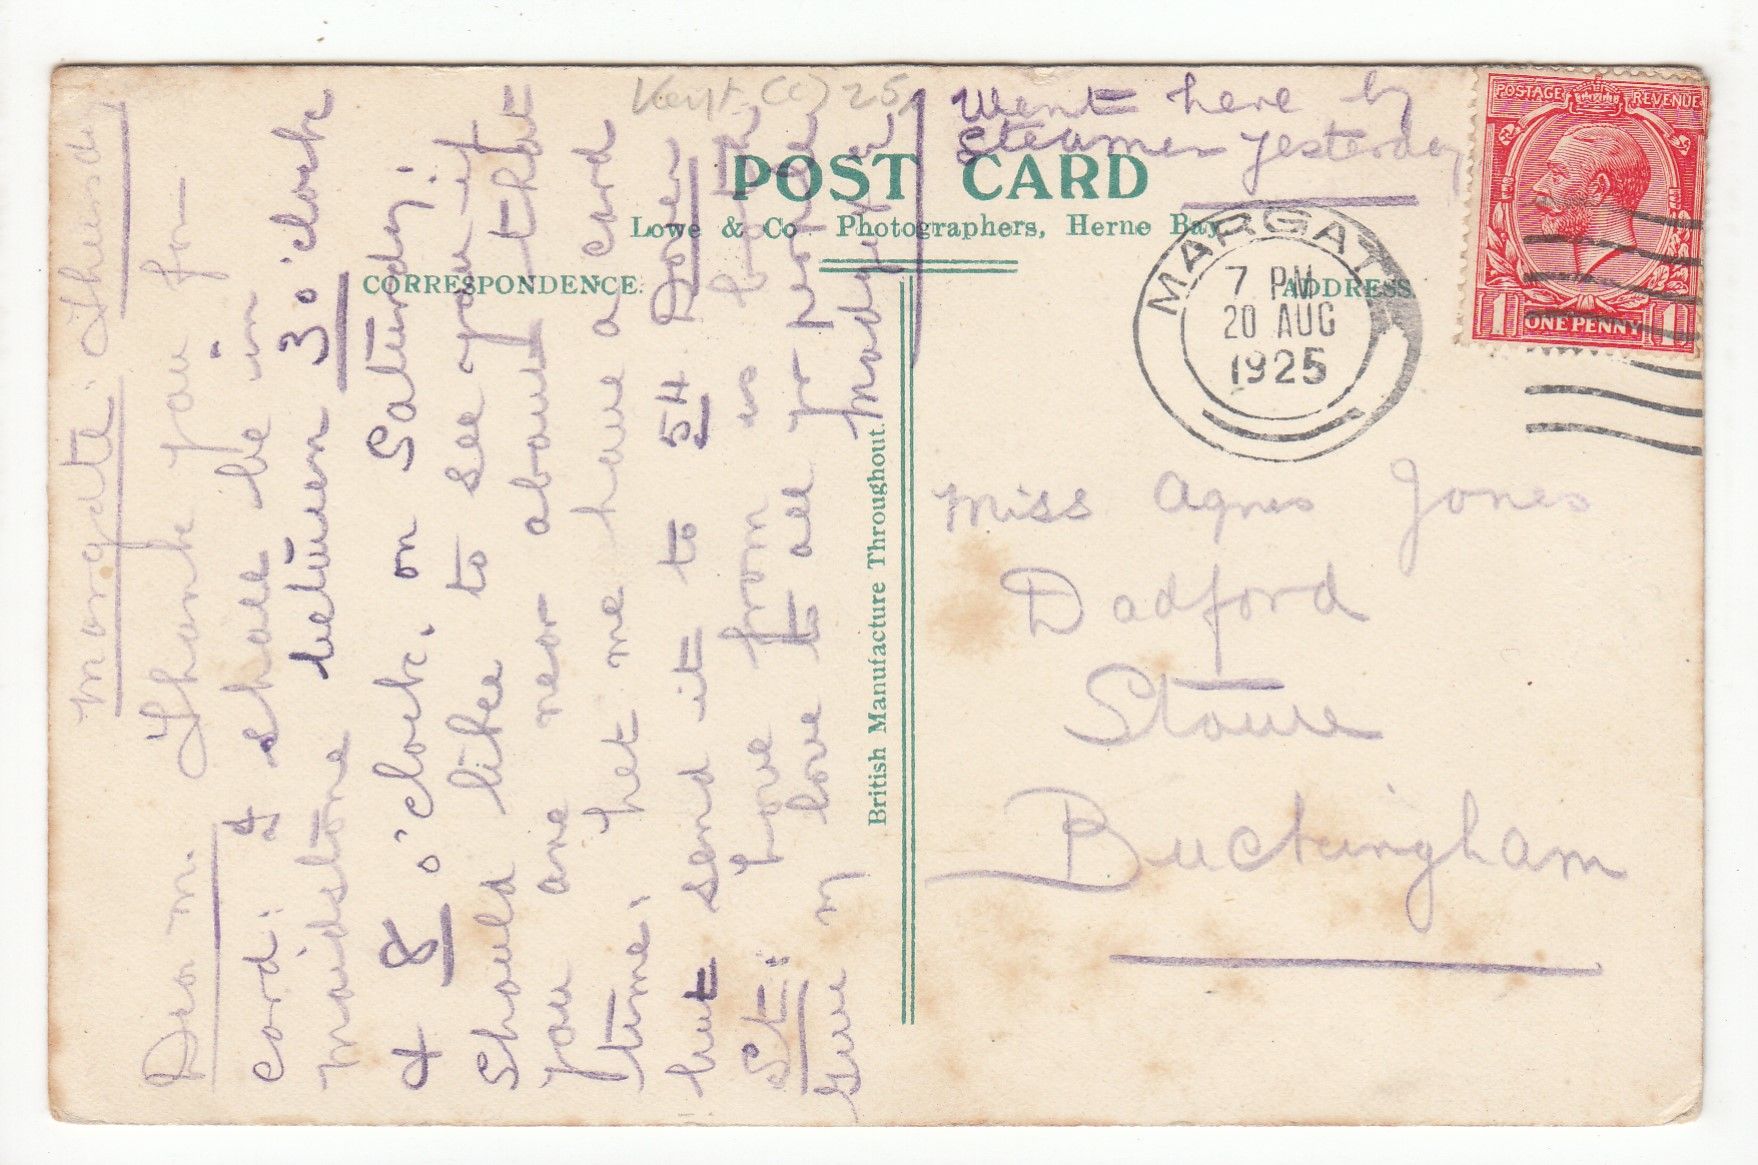 Kent (C) 25/
Went here by
Steamer yesterday
POSTAGE REVENUE
1D ONE PENNY 1D
POST CARD
Lowe & Co. Photographers, Herne Bay.
CORRESPONDENCE.
ADDRESS
British Manufacture Throughout.
MARGATE
7 PM
20 AUG
1925
Margate. Thursday
Dear M. Thank you for
card: I shall be in
maidstone between 3 o'clock
& 8 o'clock. on Saturday:
should like to see you if
you are near about that
time. Let me have a card
but send it to 54
St: Love from us both
Give my love to all for
Madge
Miss Agnes Jones
Dadford
Stowe
Buckingham